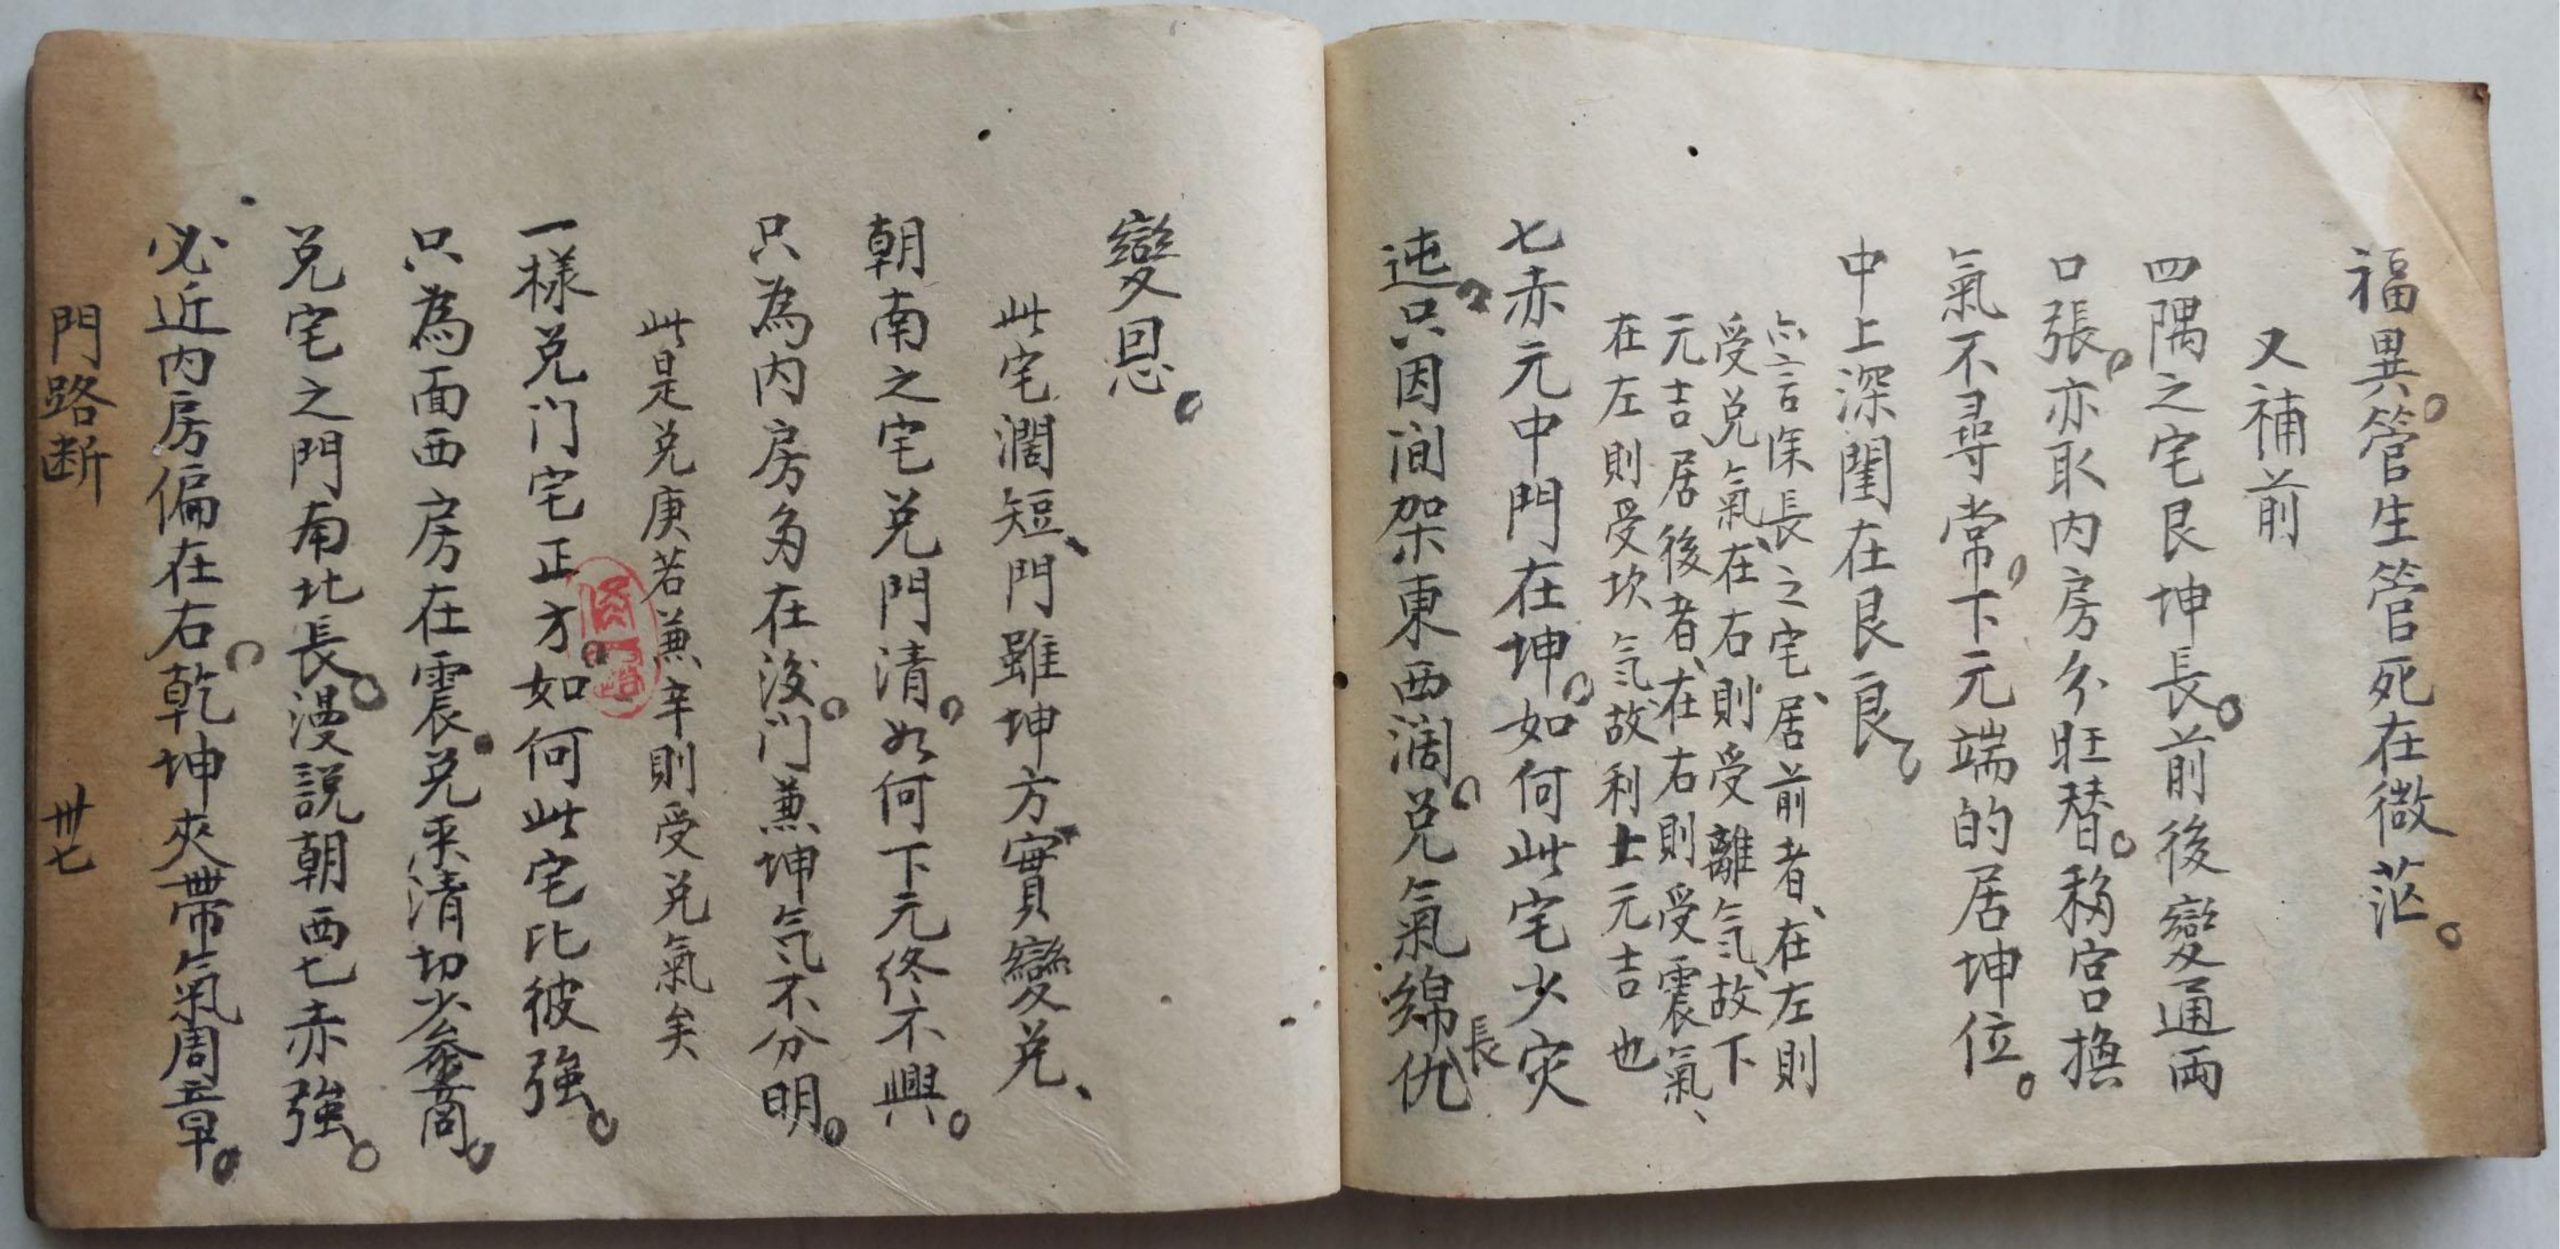 福異管生管死在微茫。
又補前
四隅之宅艮坤長。前後變通両
口張。亦取内房分旺替。移宮換
氣不尋常。下元端的居坤位。
中上深閨在艮良。
此言深長之宅、居前者、在左則
受兑氣、在右則受離气、故下
元吉居後者、在右則受震氣、
在左則受坎气、故利上元吉也
七赤元中門在坤。如何此宅少灾
迍。只因间架東西濶。兑氣綿
長
變恩。
此宅濶短、門雖坤方實變兑、
朝南之宅兑門清。如何下元終不興。
只為内房多在後。门兼坤气不分明。
此是兑庚若兼辛則受兑氣矣
一樣兑门宅正方。如何此宅比彼強。
只為面西房在震。兑來清切少參商。
兑宅之門南北長。漫說朝西七赤強。
必近内房偏在右。乾坤夾帶氣周章。
門路断
卅七